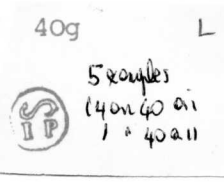 40g L
5 examples
(4 on 40 ai
1 " 40 a11
S
I P